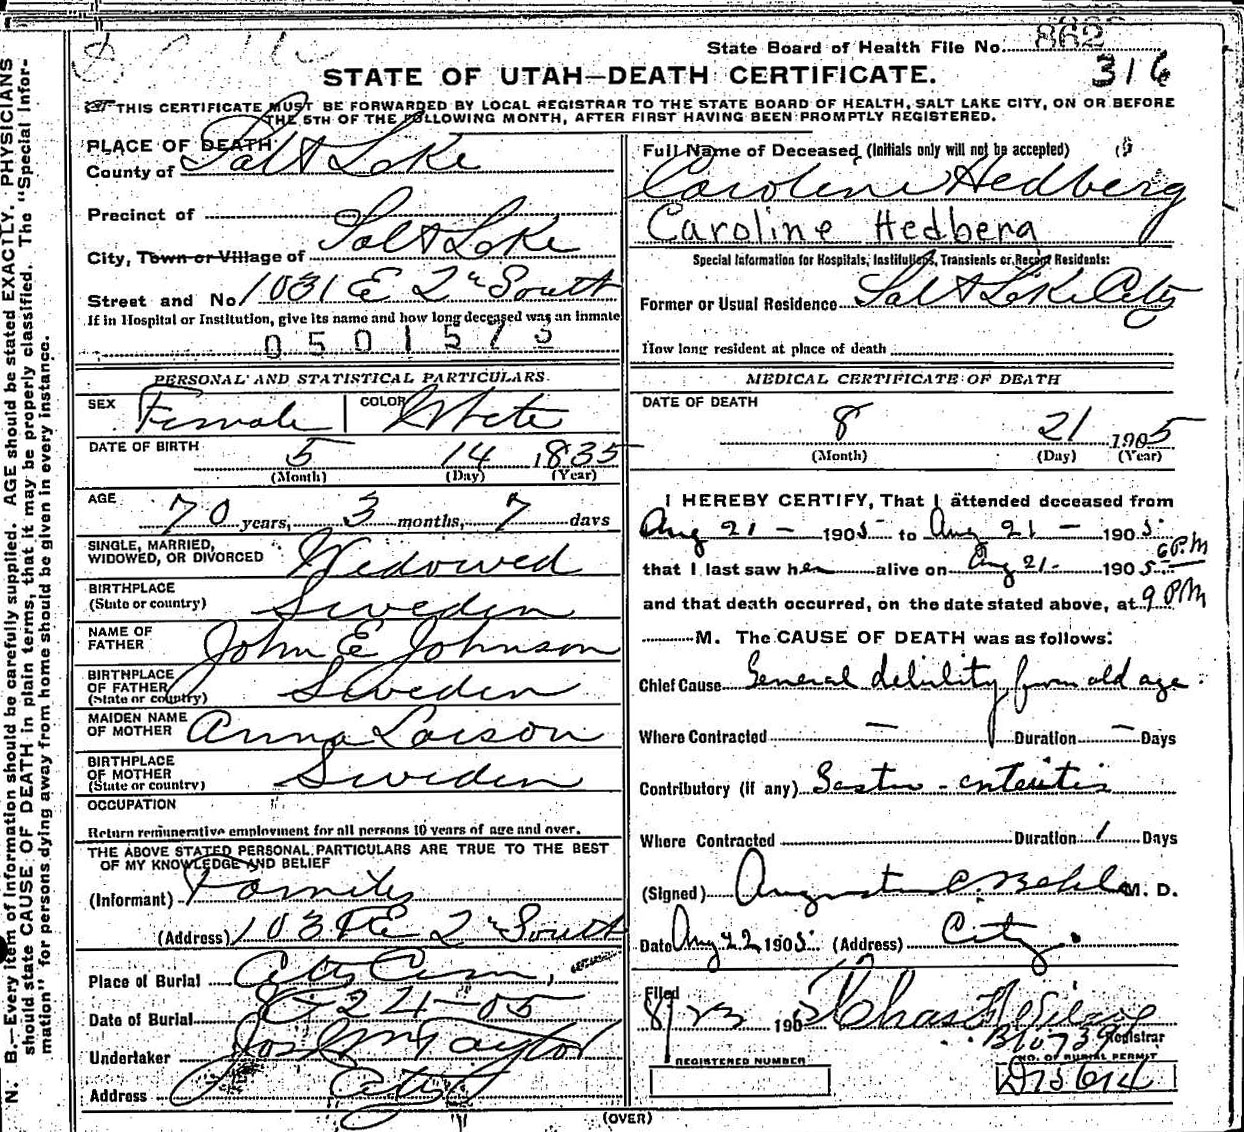 State Board of Health File No. 862
316
STATE OF UTAH—DEATH CERTIFICATE.
THIS CERTIFICATE MUST BE FORWARDED BY LOCAL REGISTRAR TO THE STATE BOARD OF HEALTH, SALT LAKE CITY, ON OR BEFORE
THE 5TH OF THE FOLLOWING MONTH, AFTER FIRST HAVING BEEN PROMPTLY REGISTERED.
N. B.—Every item of information should be carefully supplied. AGE should be stated EXACTLY. PHYSICIANS
should state CAUSE OF DEATH in plain terms, that it may be properly classified. The "Special Infor-
mation" for persons dying away from home should be given in every instance.
PLACE OF DEATH
County of Salt Lake
Precinct of
City, Town or Village of Salt Lake
Street and No. 1031 E 2nd South
If in Hospital or Institution, give its name and how long deceased was an inmate
0501573
PERSONAL AND STATISTICAL PARTICULARS.
SEX Female COLOR White
DATE OF BIRTH 5 14 1835
(Month) (Day) (Year)
AGE 70 years, 3 months, 7 days
SINGLE, MARRIED,
WIDOWED, OR DIVORCED Widowed
BIRTHPLACE
(State or country) Sweden
NAME OF
FATHER John E Johnson
BIRTHPLACE
OF FATHER
(State or country) Sweden
MAIDEN NAME
OF MOTHER Anna Larson
BIRTHPLACE
OF MOTHER
(State or country) Sweden
OCCUPATION
Return remunerative employment for all persons 10 years of age and over.
THE ABOVE STATED PERSONAL PARTICULARS ARE TRUE TO THE BEST
OF MY KNOWLEDGE AND BELIEF
(Informant) Family
(Address) 1031 E 2nd South
Place of Burial City Cem,
Date of Burial 8-24-05
Undertaker Jos Wm Taylor
Address City
Full Name of Deceased (Initials only will not be accepted)
Caroline Hedberg
Caroline Hedberg
Special Information for Hospitals, Institutions, Transients or Recent Residents:
Former or Usual Residence Salt Lake City
How long resident at place of death
MEDICAL CERTIFICATE OF DEATH
DATE OF DEATH
8 21 1905
(Month) (Day) (Year)
I HEREBY CERTIFY, That I attended deceased from
Aug 21 - 1905 to Aug 21 - 1905
that I last saw her alive on Aug 21 - 1905 6 P.M
and that death occurred, on the date stated above, at 9 PM
M. The CAUSE OF DEATH was as follows:
Chief Cause General debility from old age.
Where Contracted — Duration — Days
Contributory (if any) Gastro-enteritis
Where Contracted Duration 1 Days
(Signed) August C. Behle M. D.
Date Aug 22 1905 (Address) City.
Filed
8/23 1905 Chas
Registrar
B10739
REGISTERED NUMBER
NO. OF BURIAL PERMIT
(OVER)